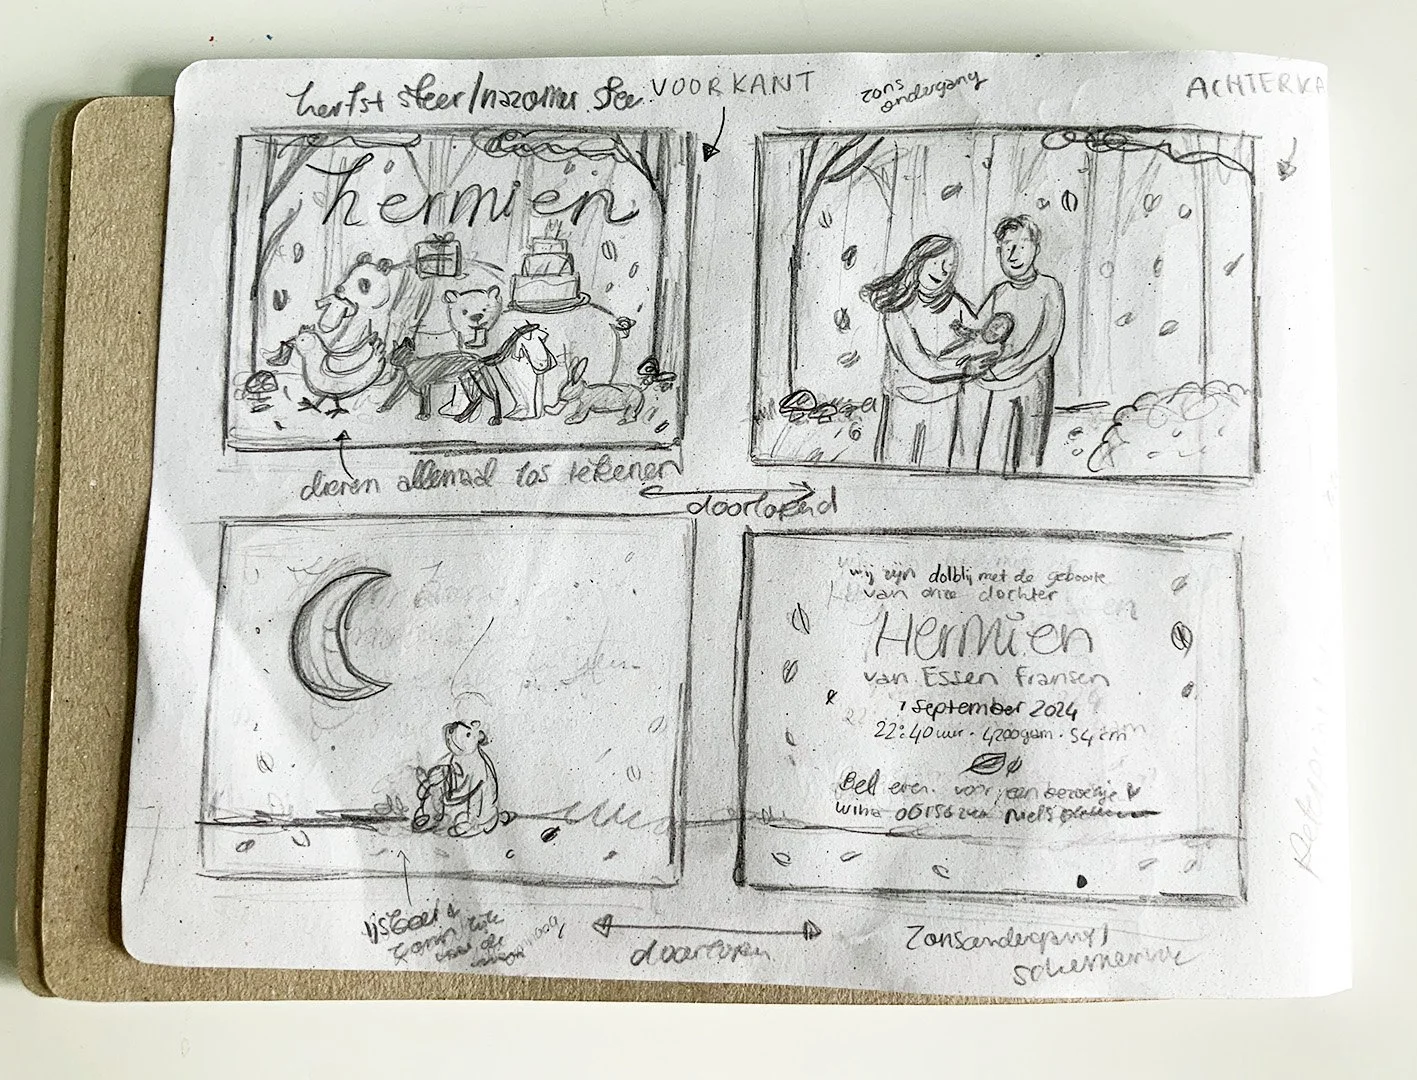 herfst sfeer/nazomer sfee
VOORKANT
zons
ondergang
ACHTERKA
hermien
dieren allemaal los tekenen
doorlopend
wij zijn dolblij met de geboorte
van onze dochter
Hermien
van Essen Fransen
1 september 2024
22:40 uur · 4200gam · 54 cm
Bel even voor een bezoekje
ijsbeer &
konijn
doorlopen
Zonsondergang/
schemering